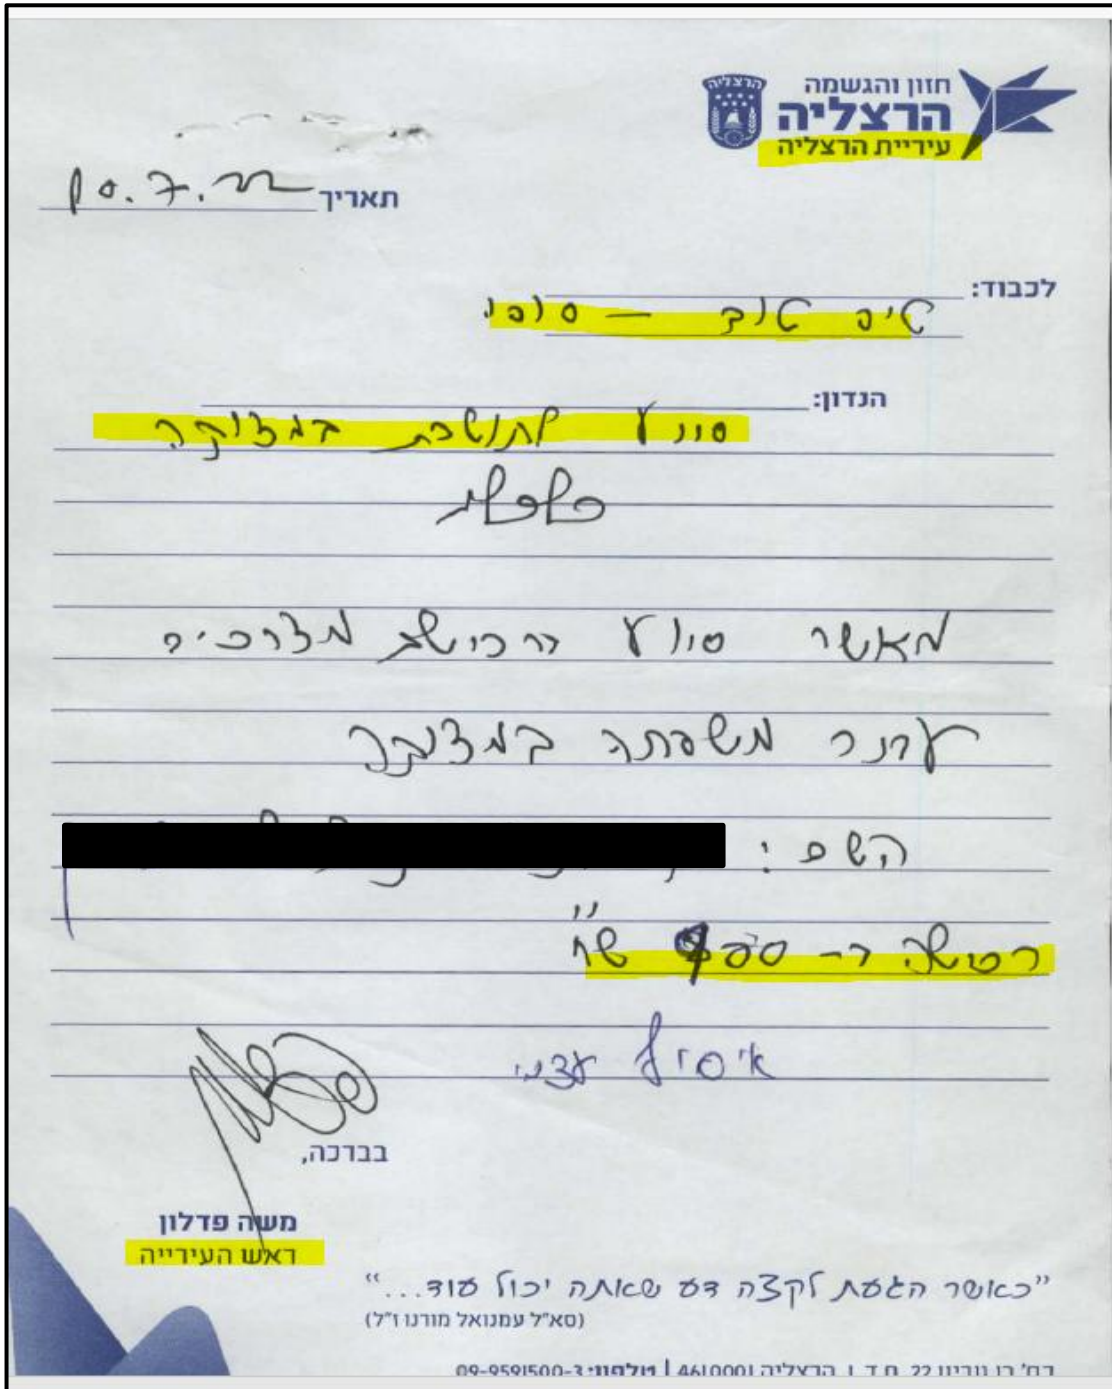 הרצליה
חזון והגשמה
הרצליה
עיריית הרצליה
תאריך 10.7.22
לכבוד:
טיב טוב – סופי
הנדון:
סיוע לתושבת במצוקה
כלכלית
מאשר סיוע ברכישת מצרכים
עבור משפחה במצוקה
השם:
רכישה ב- ש"ח
איסוף עצמי
בברכה,
משה פדלון
ראש העירייה
"כאשר הגעת לקצה דע שאתה יכול עוד..."
(סא"ל עמנואל מורנו ז"ל)
רח' בן גוריון 22 ת.ד. 1 הרצליה 4610001 | טלפון: 09-9591500-3